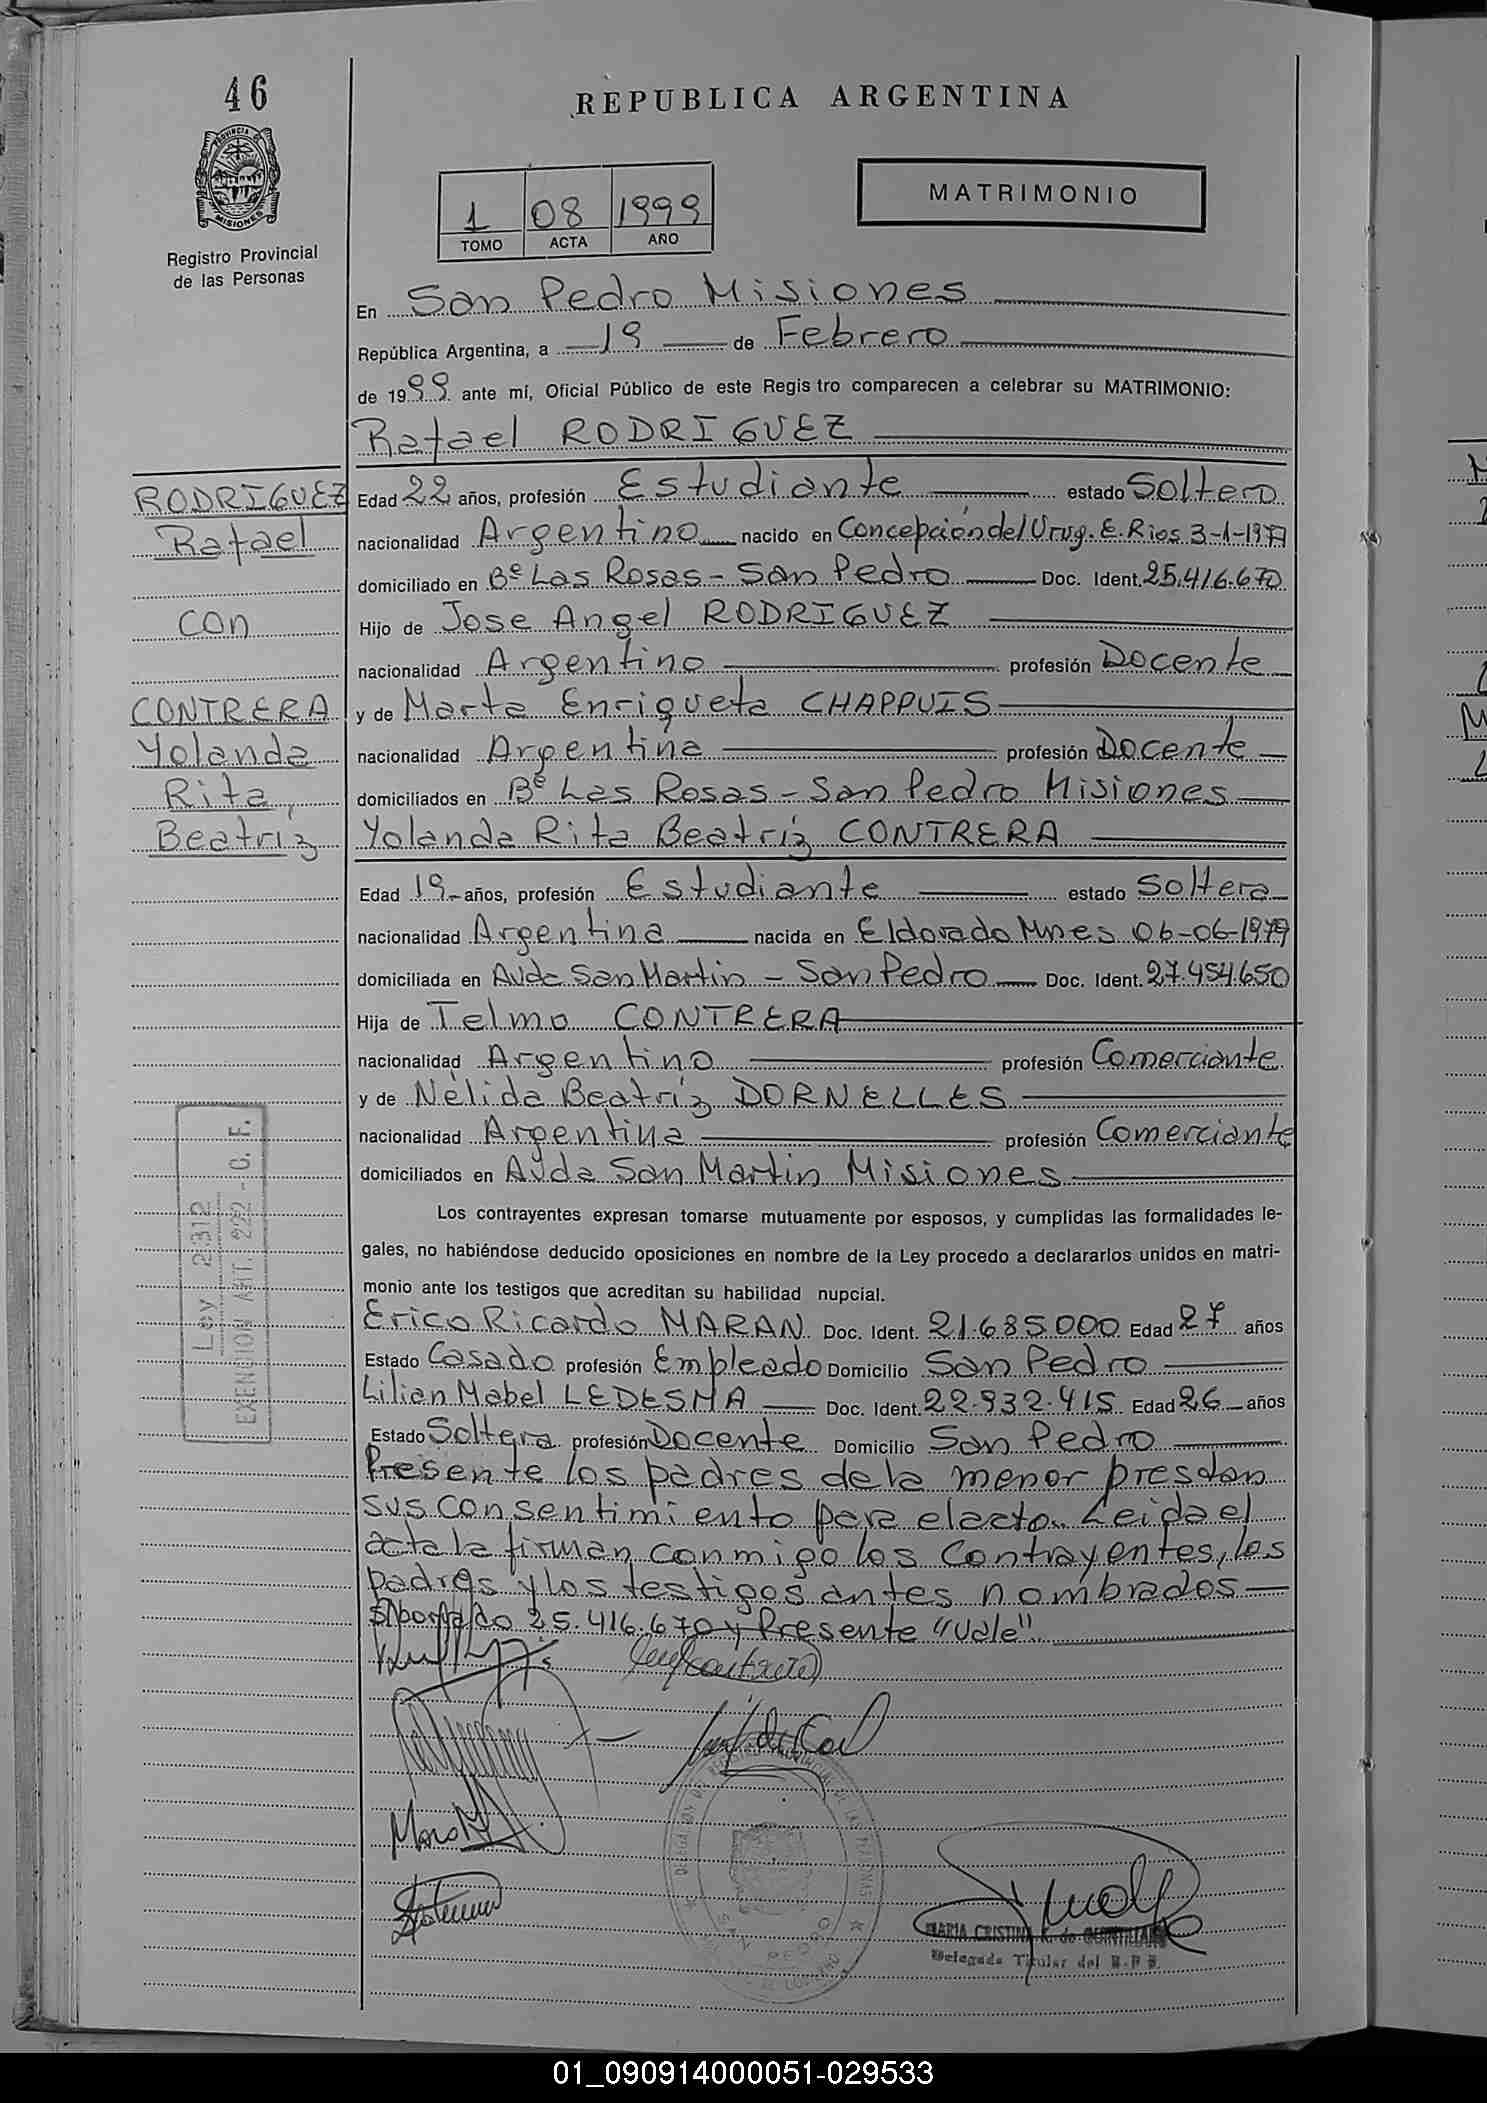 46
REPUBLICA ARGENTINA
PROVINCIA DE MISIONES
Registro Provincial
de las Personas
1 08 1999
TOMO ACTA AÑO
MATRIMONIO
En San Pedro Misiones
República Argentina, a 19 de Febrero
de 1999 ante mí, Oficial Público de este Regis tro comparecen a celebrar su MATRIMONIO:
Rafael RODRIGUEZ
RODRIGUEZ
Rafael
con
CONTRERA
Yolanda
Rita
Beatríz
Edad 22 años, profesión Estudiante estado Soltero
nacionalidad Argentino nacido en Concepción del Urug. E. Rios 3-1-1977
domiciliado en Bº Las Rosas - San Pedro Doc. Ident. 25.416.670
Hijo de Jose Angel RODRIGUEZ
nacionalidad Argentino profesión Docente
y de Marta Enriqueta CHAPPUIS
nacionalidad Argentina profesión Docente
domiciliados en Bº Las Rosas - San Pedro Misiones
Yolanda Rita Beatríz CONTRERA
Edad 19 años, profesión Estudiante estado Soltera
nacionalidad Argentina nacida en Eldorado Mnes 06-06-1979
domiciliada en Avda San Martin - San Pedro Doc. Ident. 27.454.650
Hija de Telmo CONTRERA
nacionalidad Argentino profesión Comerciante
y de Nélida Beatríz DORNELLES
nacionalidad Argentina profesión Comerciante
domiciliados en Avda San Martin Misiones
Ley 2312
EXENCION ART. 222 - C. F.
Los contrayentes expresan tomarse mutuamente por esposos, y cumplidas las formalidades le-
gales, no habiéndose deducido oposiciones en nombre de la Ley procedo a declararlos unidos en matri-
monio ante los testigos que acreditan su habilidad nupcial.
Erico Ricardo MARAN Doc. Ident. 21.685.000 Edad 27 años
Estado Casado profesión Empleado Domicilio San Pedro
Lilian Mabel LEDESMA Doc. Ident. 22.932.415 Edad 26 años
Estado Soltera profesión Docente Domicilio San Pedro
Presente los padres de la menor prestan
sus consentimiento para el acto. Leida el
acta la firman conmigo los contrayentes, los
padres y los testigos antes nombrados
S/borrado 25.416.670 y Presente "Vale".
SAN PEDRO
MARIA CRISTINA K. de QUINTILLAN
Delegada Titular del R.P.P.
01_090914000051-029533